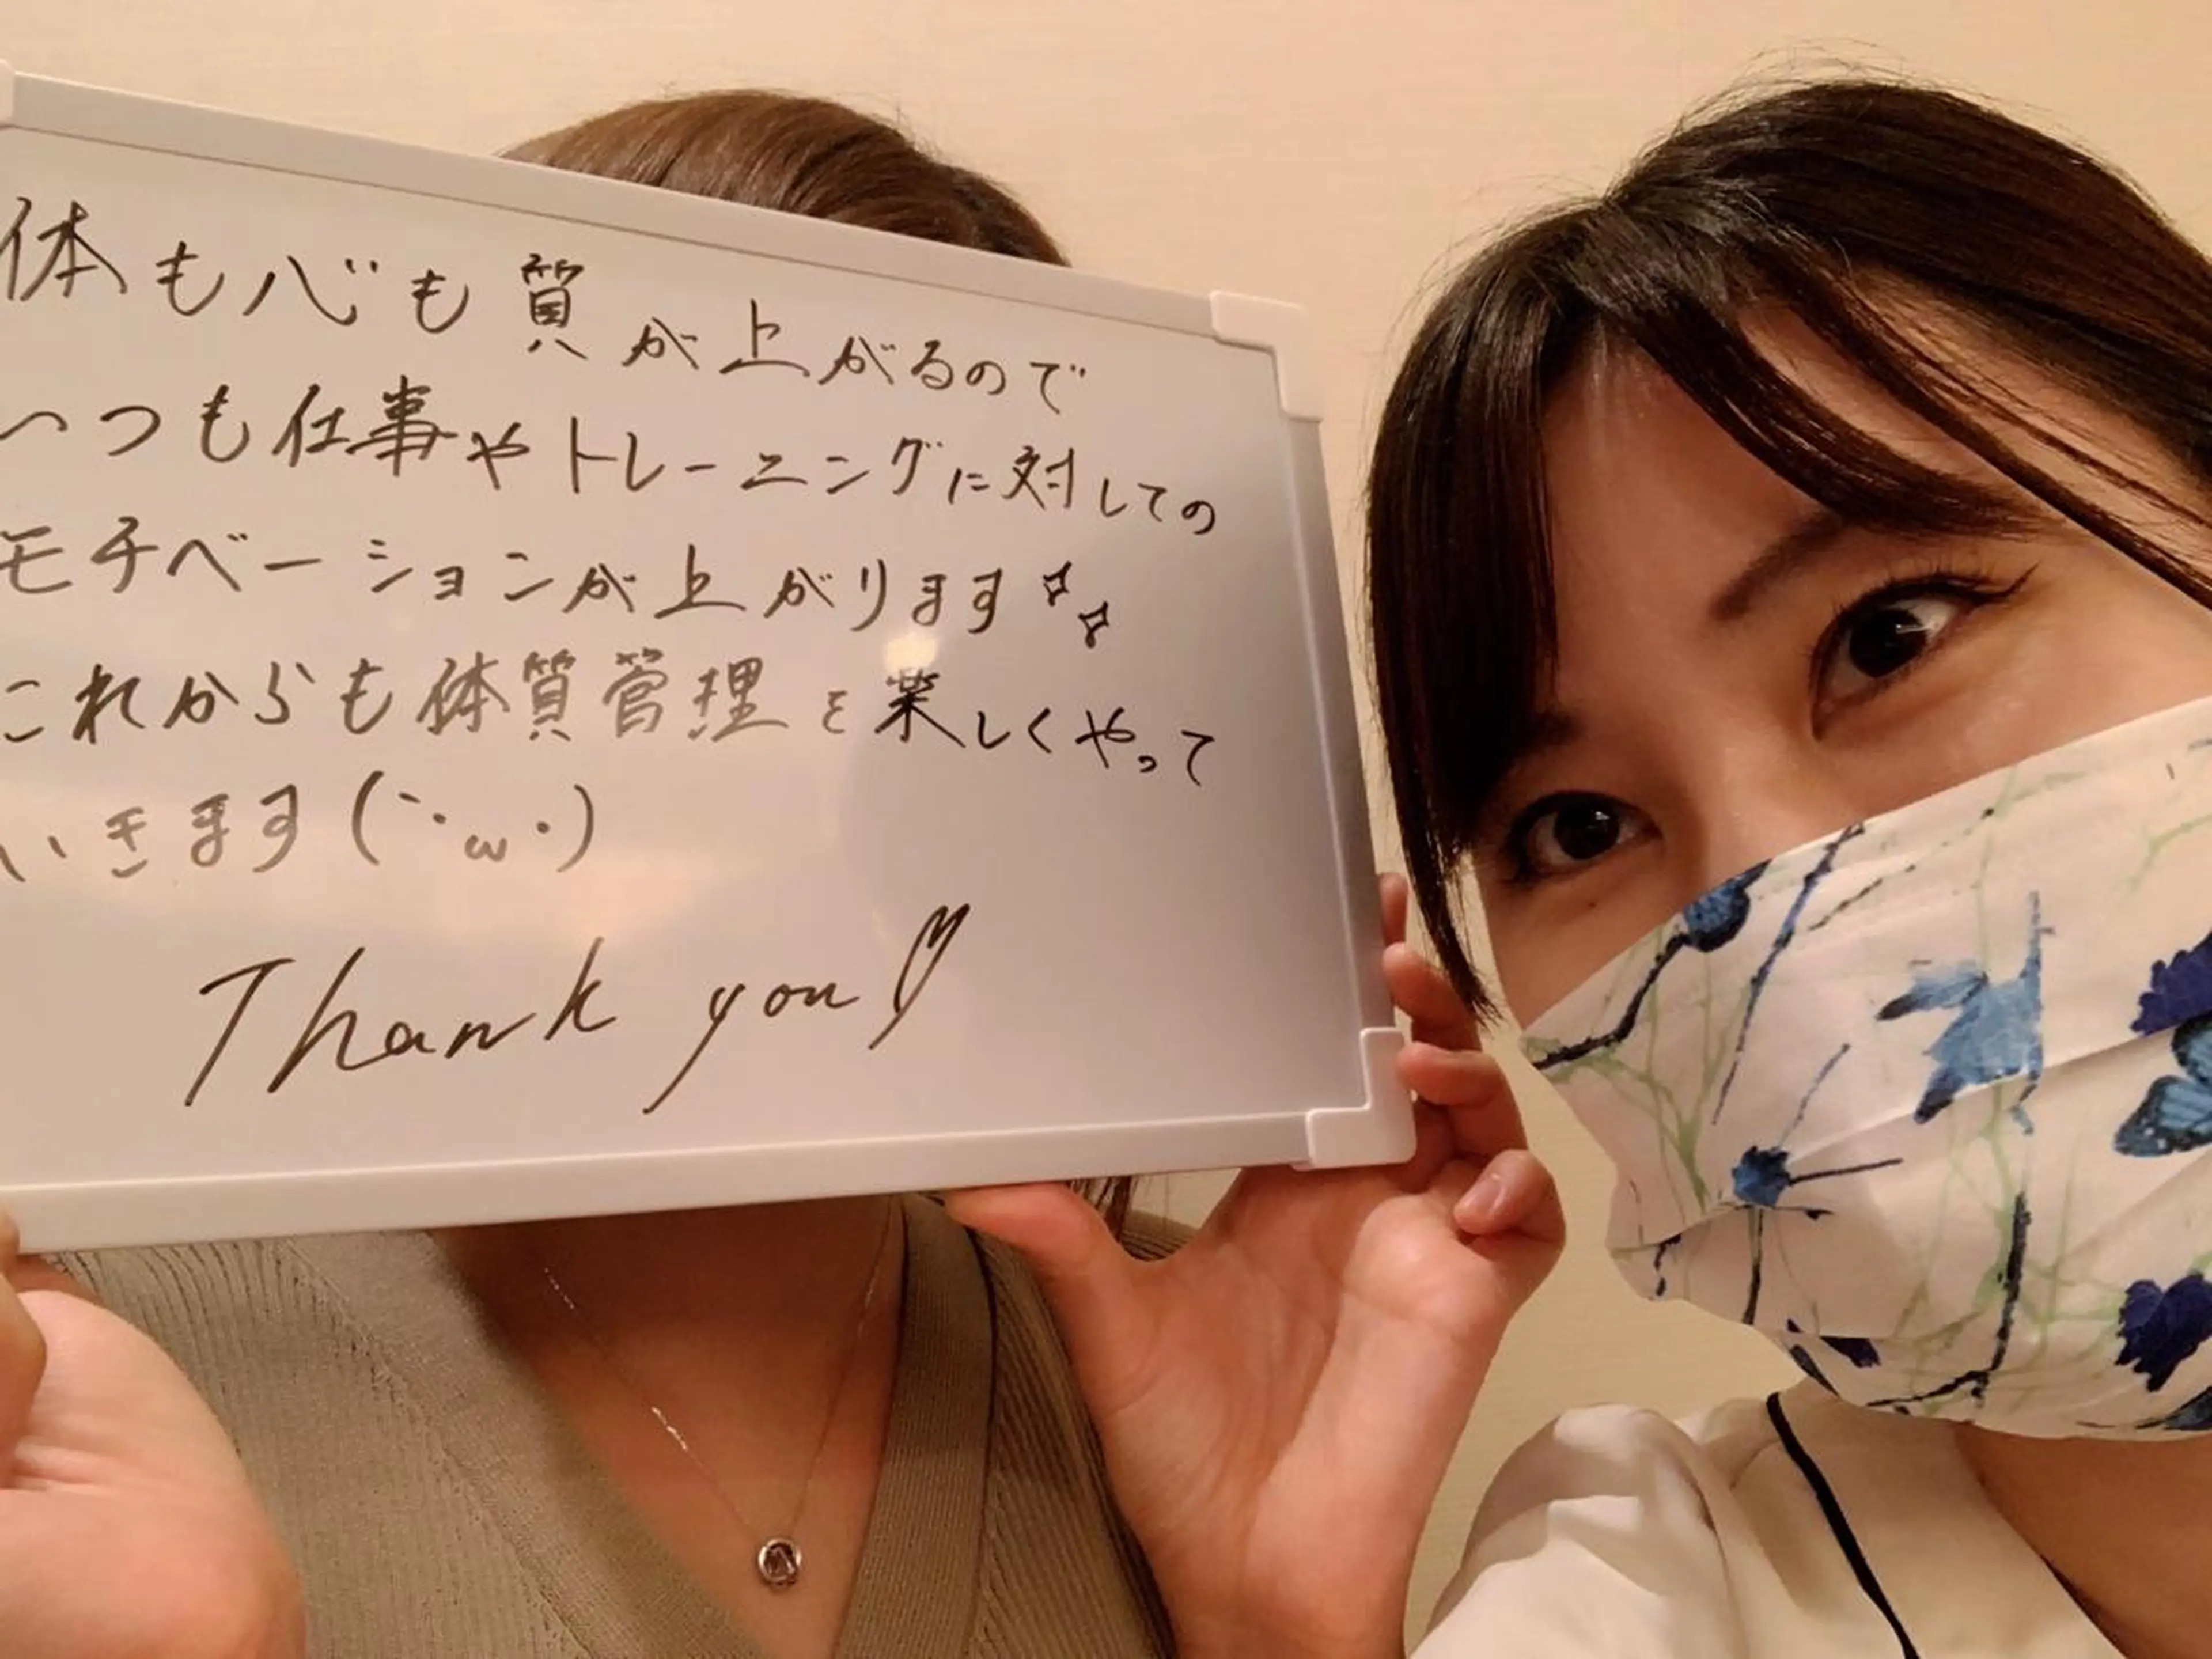 体も心も質が上がるので
いつも仕事やトレーニングに対しての
モチベーションが上がります
これからも体質管理を楽しくやって
いきます(｀・ω・)
Thank you♡